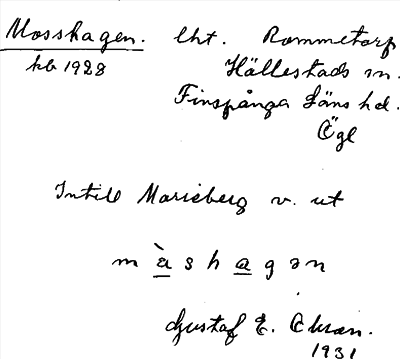 Mosshagen. lht. Rommetorp
kb 1928 Hällestads sn.
Finspånga läns hd.
Ögl
Intill Marieberg v. ut
m à s h a g ə n
Gustaf E.
1931